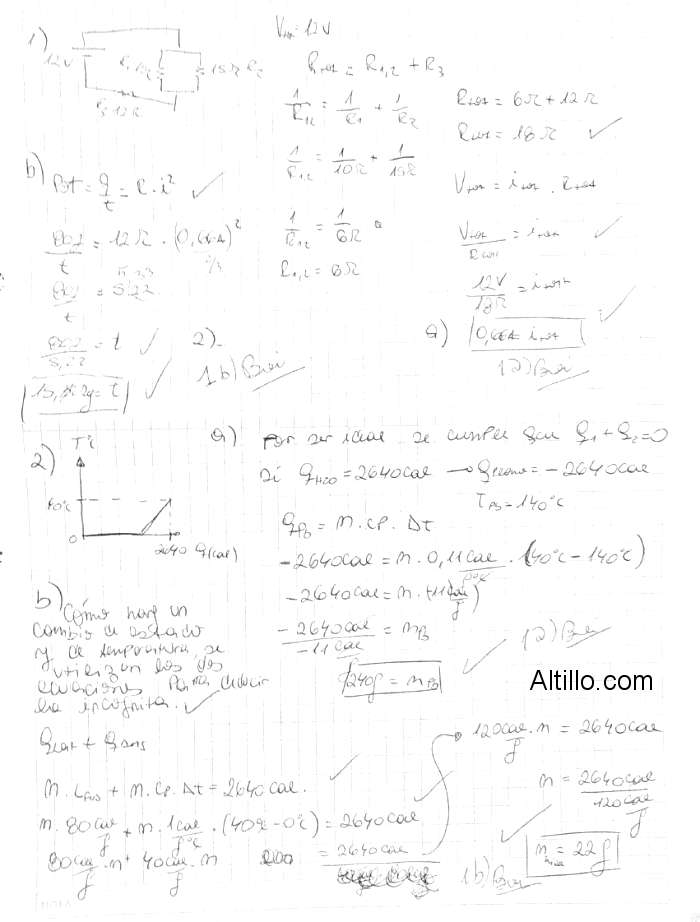 1)
12V
R₁ 10Ω
15Ω R₂
R₃ 12Ω
V = 12V
Rtot = R1,2 + R3
1/R12 = 1/R1 + 1/R2
1/R1,2 = 1/10Ω + 1/15Ω
1/R12 = 1/6Ω
R1,2 = 6Ω
Rtot = 6Ω + 12Ω
Rtot = 18Ω ✓
Vtot = itot . Rtot
Vtot/Rtot = itot ✓
12V/18Ω = itot
a) 0,66A = itot ✓
1a) Bien
b) Pot = q/t = R . i² ✓
/t = 12Ω . (0,66A)²
/t = 5,22
= t ✓
= t ✓
2).
1b) Bien
2)
T°C
40°C
0
2640 q(cal)
a) Por ser ideal se cumple que q1 + q2 = 0
Si qH2O = 2640cal → q = -2640cal
TPb = 140°C
qPb = m . cp . Δt
-2640cal = m . 0,11cal/g°C . (40°C - 140°C)
-2640cal = m . (-11cal/g)
-2640cal/-11cal/g = m
240g = m ✓
1a) Bien
Altillo.com
b) Cómo hay un
cambio de estado
y de temperatura, se
utilizan las dos
ecuaciones para deducir
la incógnita. ✓
qlat + qsens
m . Lfus + m . cp . Δt = 2640cal. ✓
m . 80cal/g + m . 1cal/g°C . (40°C - 0°C) = 2640cal ✓
80cal/g . m + 40cal/g . m = 2640cal
120cal/g . m = 2640cal
m = 2640cal/120cal/g
m = 22g ✓
1b) Bien